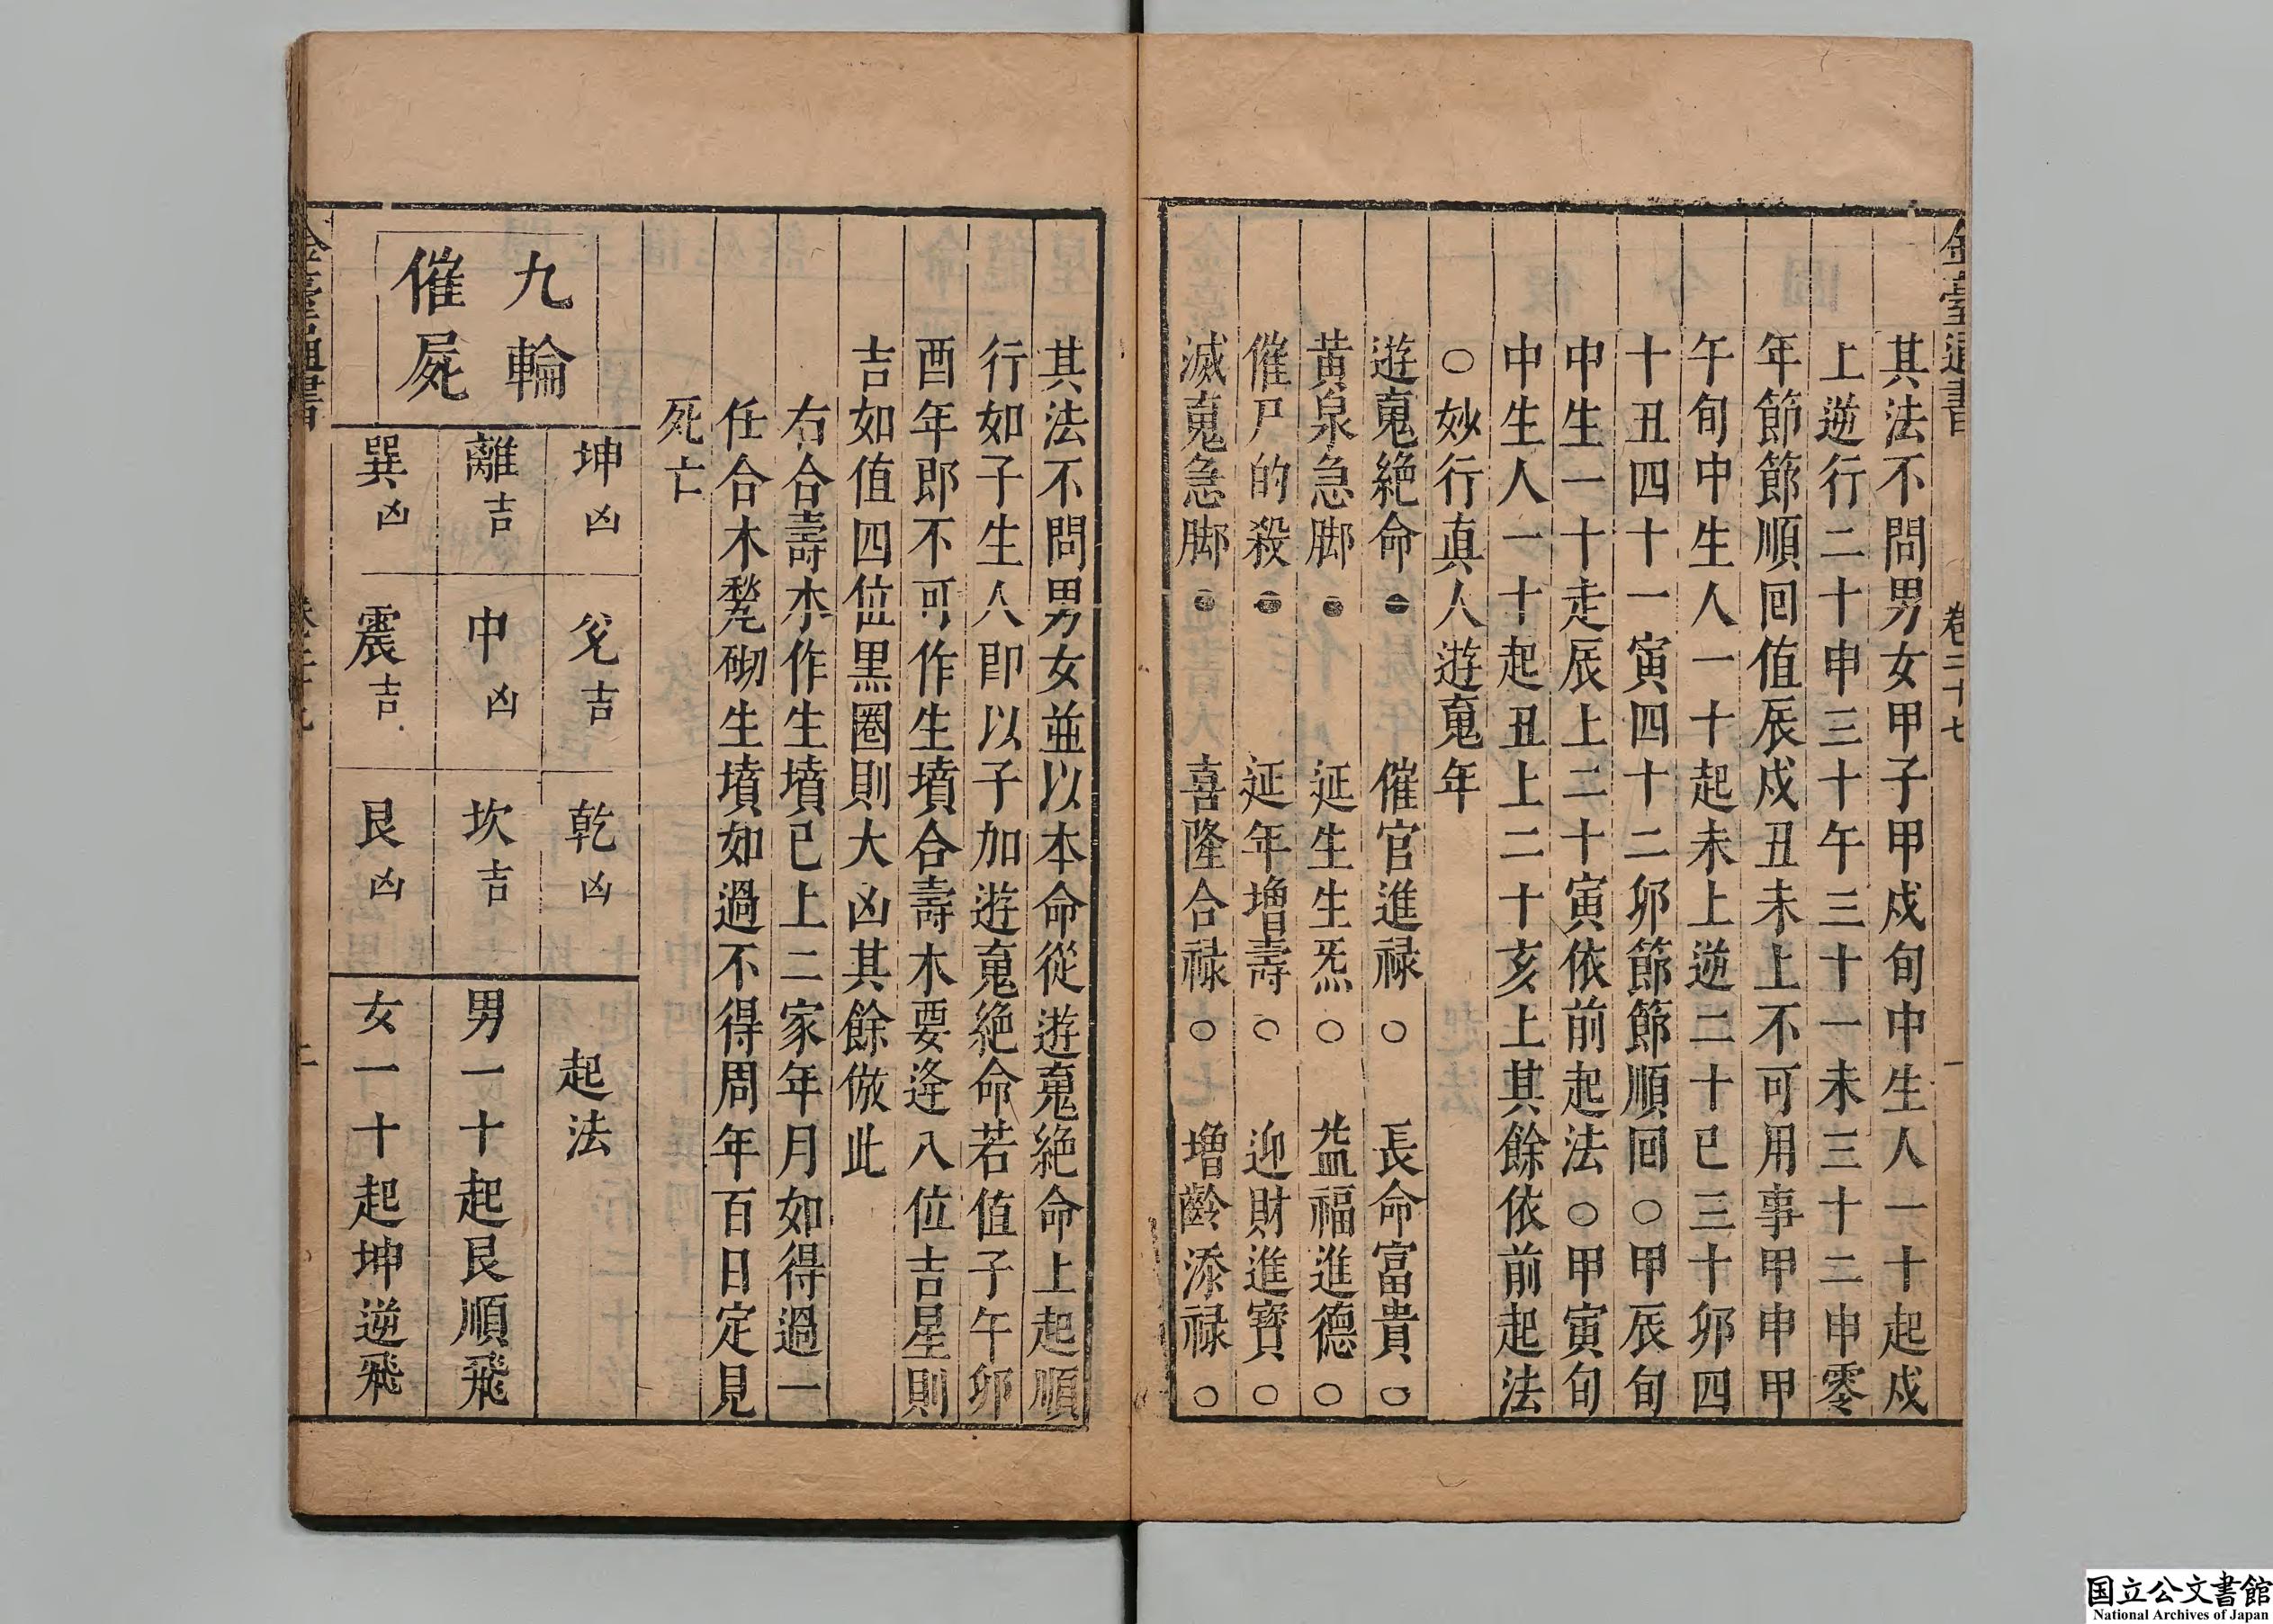 金臺通書　卷三十七　一
其法不問男女甲子甲戍旬中生人一十起戍
上逆行二十申三十午三十一未三十二申零
年節節順回值辰戍丑未上不可用事甲申甲
午旬中生人一十起未上逆二十巳三十卯四
十丑四十一寅四十二卯節節順回○甲辰旬
中生一十走辰上二十寅依前起法○甲寅旬
中生人一十起丑上二十亥上其餘依前起法
○妙行真人遊䰟年
遊䰟絶命●　催官進禄○　長命富貴○
黄泉急脚●　延生生炁○　益福進德○
催尸的殺●　延年增壽○　迎財進寶○
滅䰟急脚●　喜隆合禄○　增齡添禄○
其法不問男女並以本命從遊䰟絶命上起順
行如子生人即以子加遊䰟絶命若值子午卯
酉年即不可作生墳合壽木要逢八位吉星則
吉如值四位黒圈則大凶其餘倣此
右合壽木作生墳已上二家年月如得過一
任合木甃砌生墳如過不得周年百日定見
死亡
九輪
催屍
坤凶　兊吉　乾凶
離吉　中凶　坎吉
巽凶　震吉　艮凶
起法
男一十起艮順飛
女一十起坤逆飛
国立公文書館
National Archives of Japan